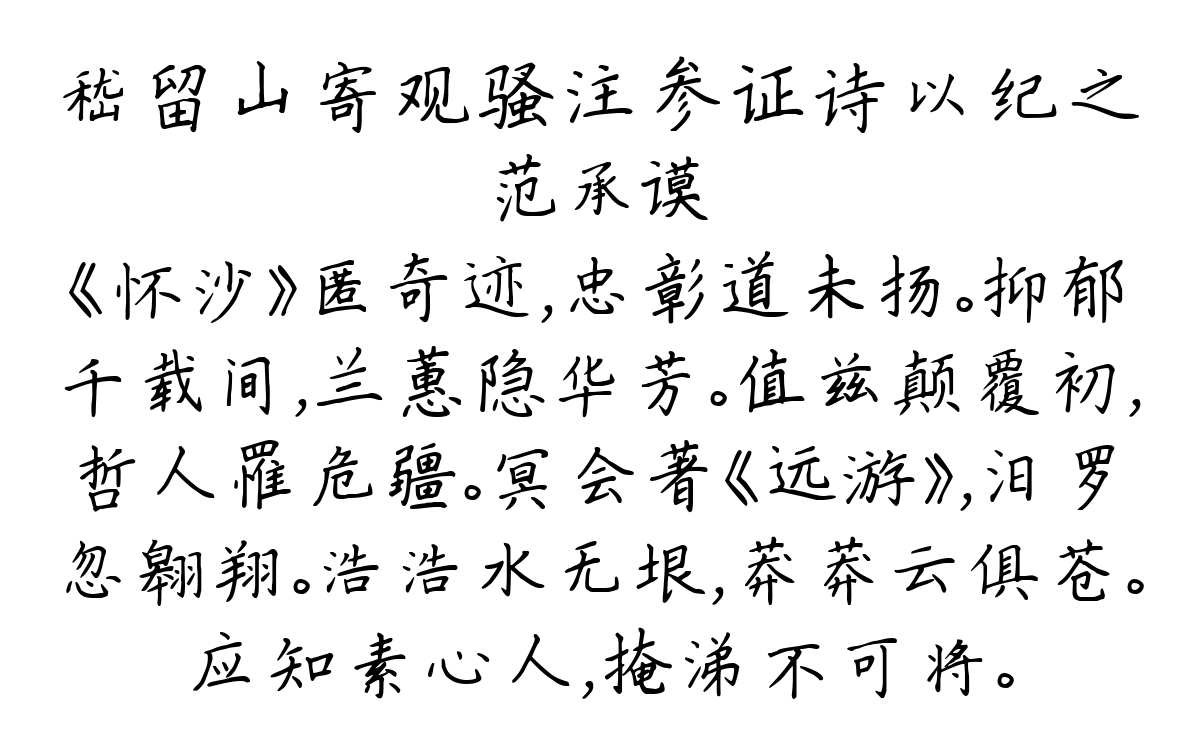 嵇留山寄观骚注参证诗以纪之
范承谟
《怀沙》匿奇迹,忠彰道未扬。抑郁
千载间,兰蕙隐华芳。值兹颠覆初,
哲人罹危疆。冥会著《远游》,汨罗
忽翱翔。浩浩水无垠,莽莽云俱苍。
应知素心人,掩涕不可将。